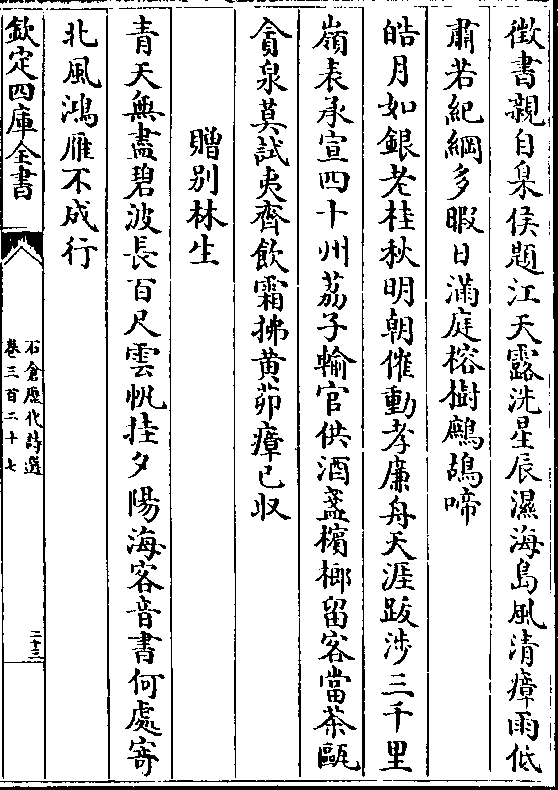 徴書親自臬侯題江天露洗星辰濕海島風清瘴雨低
肅若紀綱多暇日滿庭榕樹鷓鴣啼
皓月如銀老桂秋明朝催動孝廉舟天涯跋涉三千里
嶺表承宣四十州荔子輸官供酒盞檳榔留客當茶甌
貪泉莫試夷齊飲霜拂黄茆瘴已収
贈别林生
青天無盡碧波長百尺雲帆挂夕陽海客音書何處寄
北風鴻雁不成行
欽定四庫全書
石倉歷代詩選
卷三百二十七
二十三